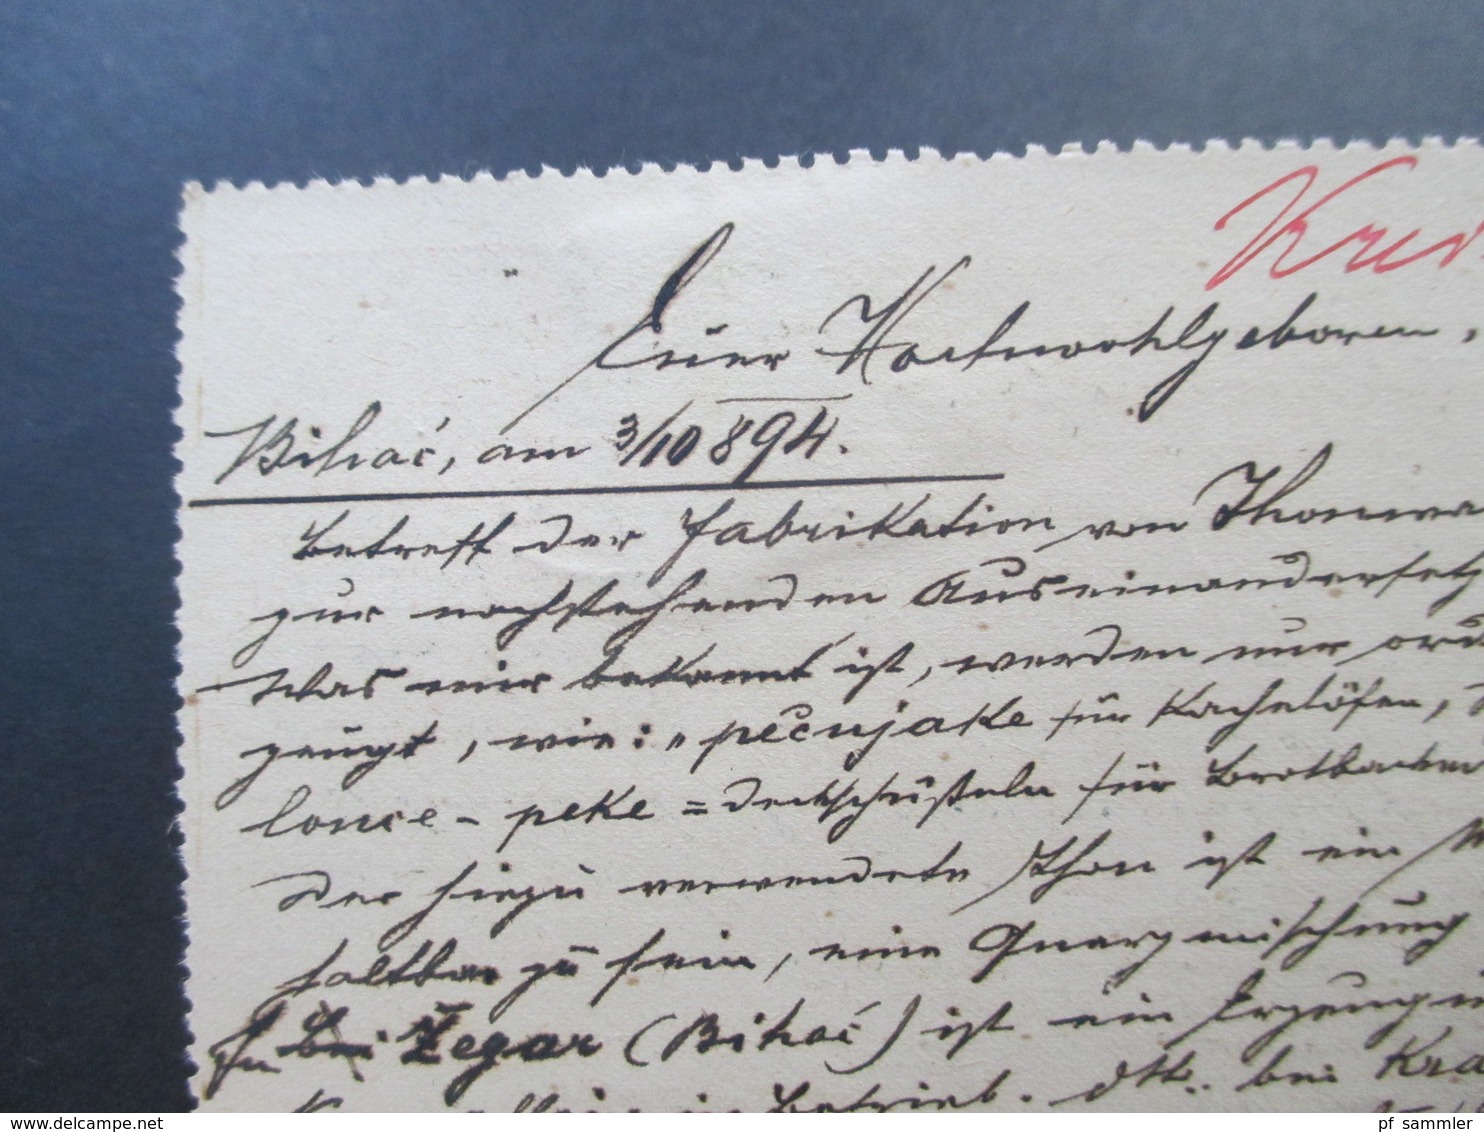 Kre
Euer Hochwohlgeboren,
Bihać, am 3/10 894.
Betreff der Fabrikation von Thonwa
zur nachstehenden Auseinandersetz
Was mir bekannt ist, werden nur
zeugt, wie: „pečnjake für Kachelöfen,
lonce - peke = deckschüßeln für Brotbacken
Der hiezu verwendete Thon ist ein
haltbar zu sein, eine Quarzmischung
In Žegar (Bihać) ist ein Erzeugu
in Betrieb. dtt. bei Kra
delcampe.net
pf_sammler